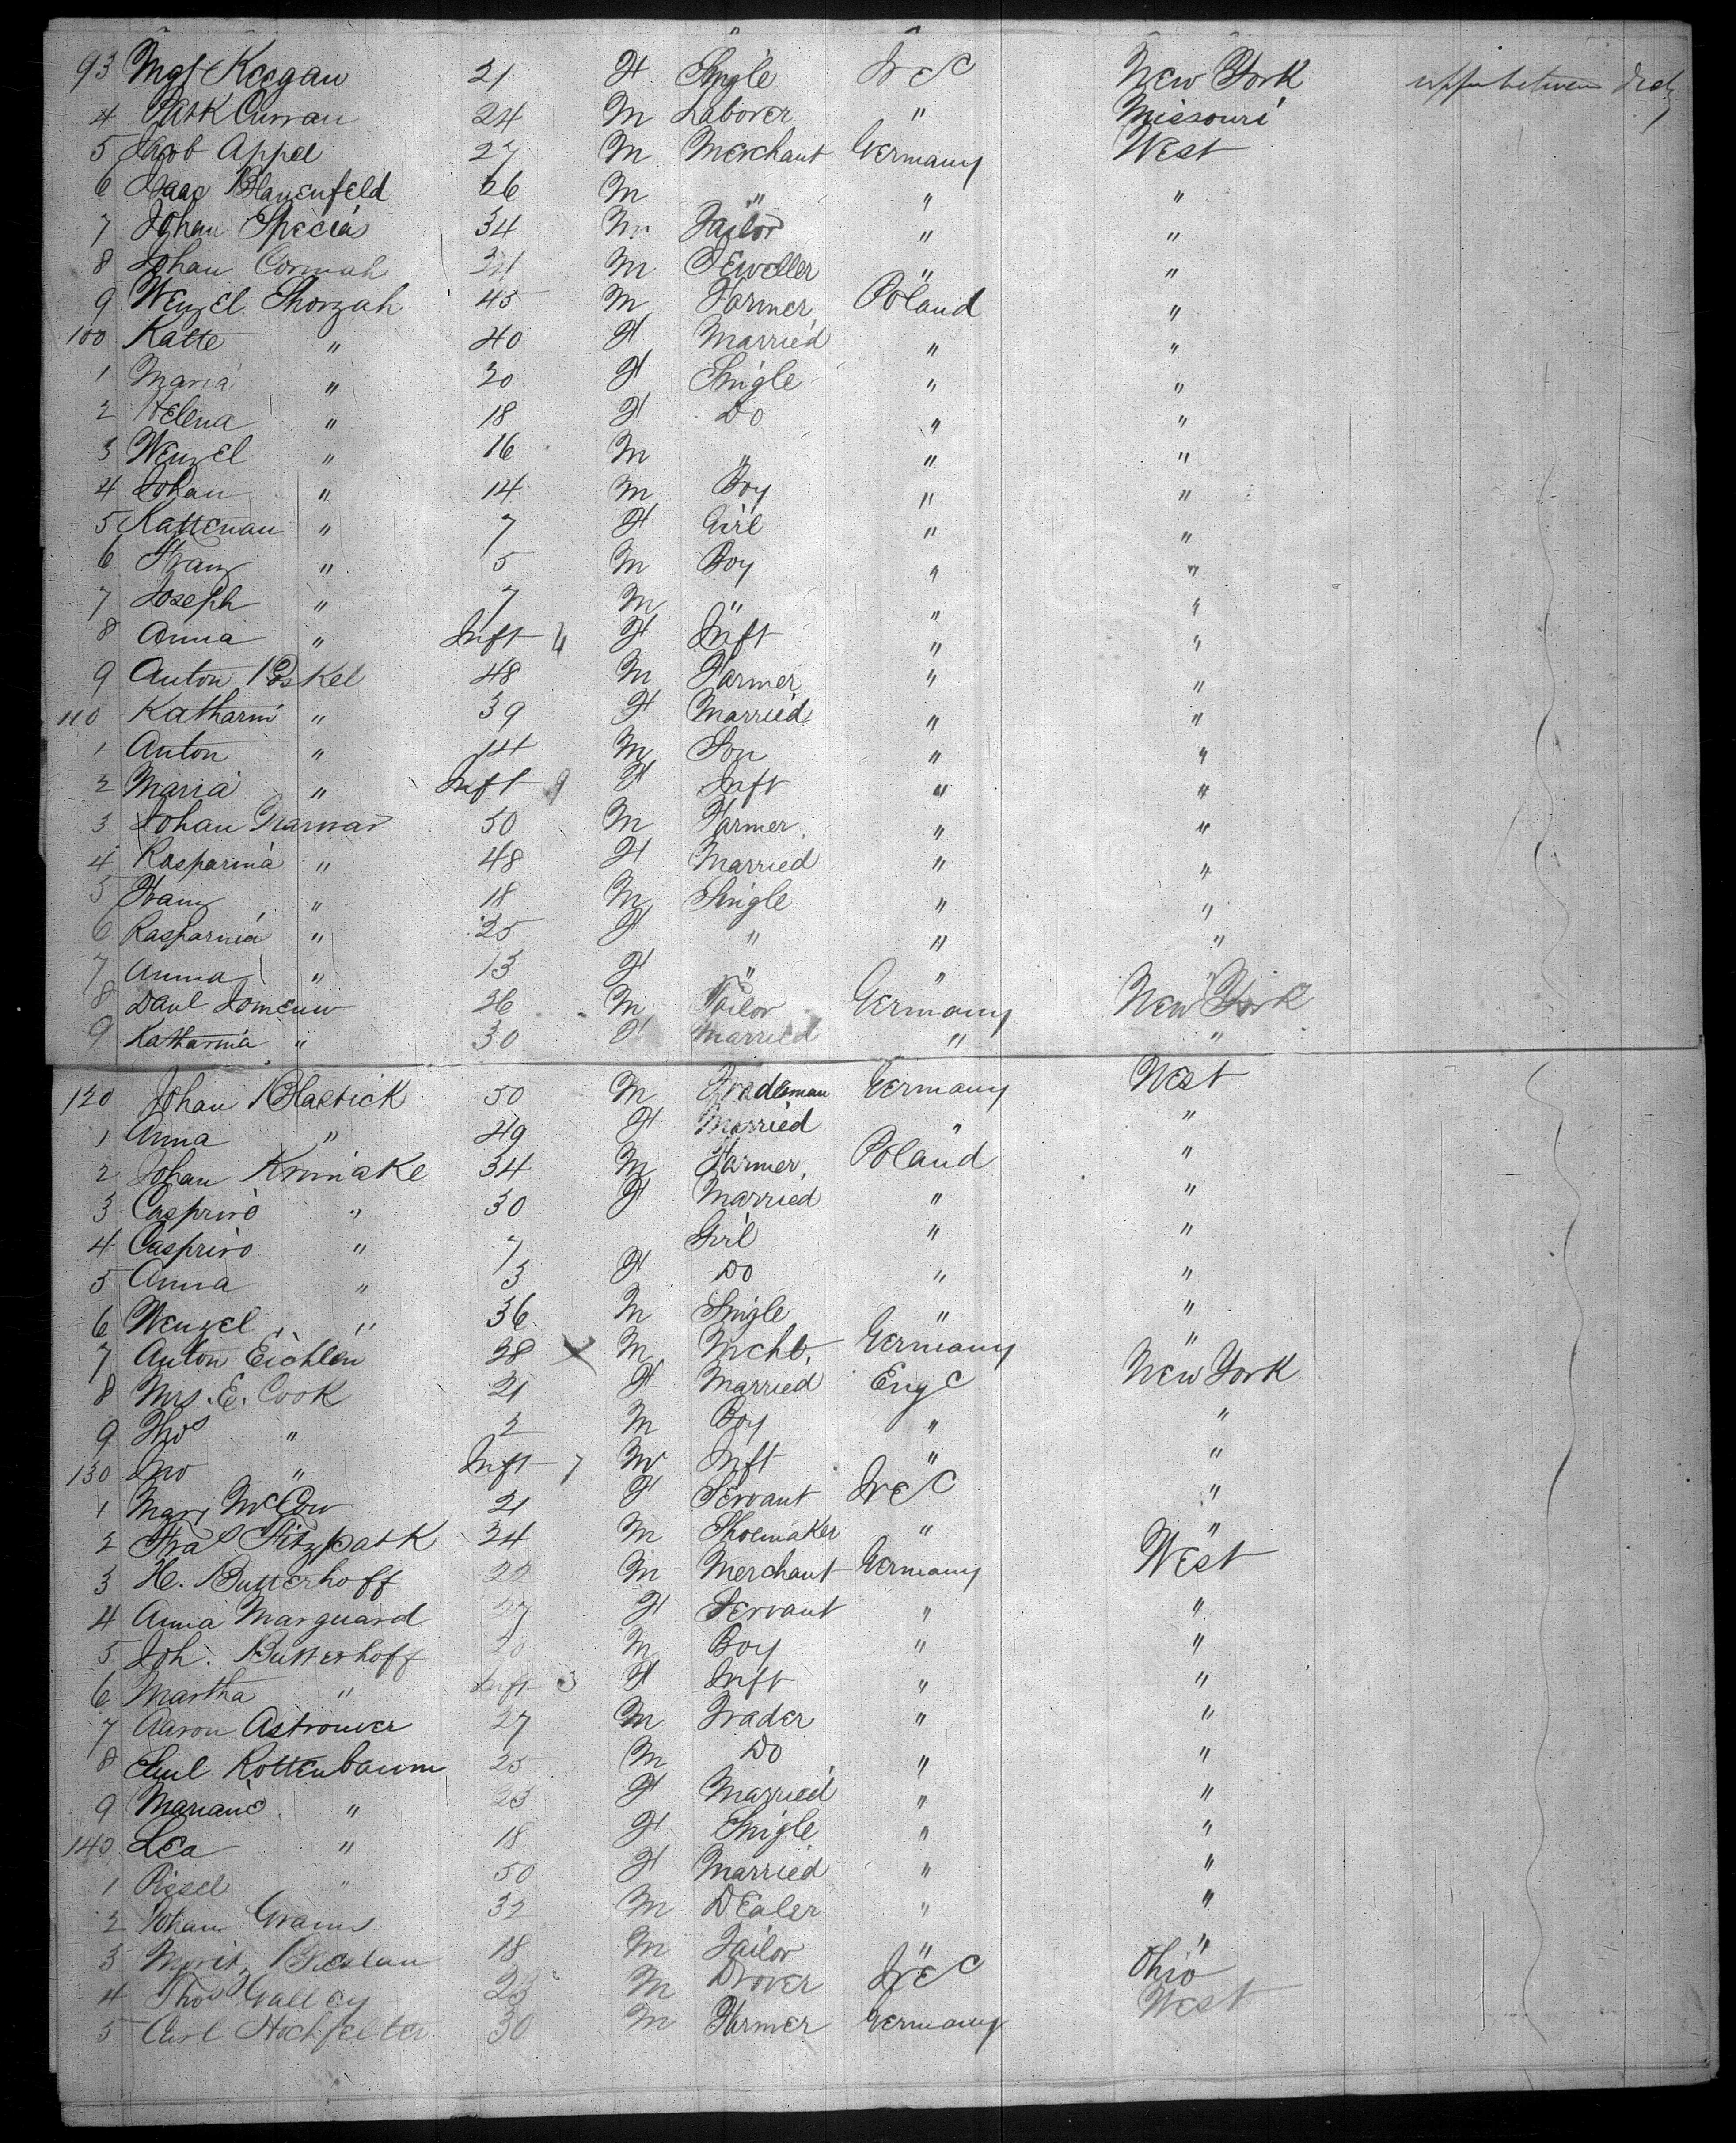 93 Mgt Keegan 21 F Single Irel New York upper between decks
4 Patk Curran 24 M Laborer " Missouri
5 Jacob Appel 27 M Merchant Germany West
6 Isaac Blauenfeld 26 M " " "
7 Johan Specias 34 M Tailor " "
8 Johan Cormah 34 M Jeweller " "
9 Wenzel Shorzah 45 M Farmer Poland "
100 Katte " 40 F Married " "
1 Maria " 20 F Single " "
2 Helena " 18 F Do " "
3 Wenzel " 16 M " " "
4 Johan " 14 M Boy " "
5 Kattenau " 7 F Girl " "
6 Franz " 5 M Boy " "
7 Joseph " 7 M " " "
8 Anna " Inft 4 F Inft " "
9 Anton Poskel 48 M Farmer " "
110 Katharin " 39 F Married " "
1 Anton " 14 M Son " "
2 Maria " Inft 9 F Inft " "
3 Johan 50 M Farmer " "
4 Kasparina " 48 F Married " "
5 Franz " 18 M Single " "
6 Kasparnia " 25 F " " "
7 Anna " 13 F " " "
8 Danl Lomenw 26 M Tailor Germany New York
9 Katharnia " 30 F Married " "
120 Johan Blasick 50 M Tradesman Germany West
1 Anna " 49 F Married " "
2 Johan Krmiake 34 M Farmer Poland "
3 Casprivo " 30 F Married " "
4 Casprivo " 7 Girl " "
5 Anna " 3 F Do " "
6 Wenzel " 36 M Single " "
7 Anton Eichlen 28 X M Mcht. Germany "
8 Mrs. E. Cook 21 F Married Engl New York
9 Thos " 2 M Boy " "
130 Jno " Inft 7 M Inft " "
1 Mary McCow 21 F Servant Irel "
2 Fras Fitzpatk 24 M Shoemaker " "
3 H. Butterhoff 22 M Merchant Germany West
4 Anna Marquard 27 F Servant " "
5 Joh. Butterhoff 20 M Boy " "
6 Martha " Inft 3 F Inft " "
7 Aaron Astrouver 27 M Trader " "
8 Emil Rottenbaum 25 M Do " "
9 Mariane " 23 F Married " "
140 Lea " 18 F Single " "
1 Pissel " 50 F Married " "
2 Johan Grams 32 M Dealer " "
3 Moritz Breslau 18 M Tailor " "
4 Thos Galley 23 M Drover Irel Ohio
5 Carl Hochfelter 30 M Farmer Germany West